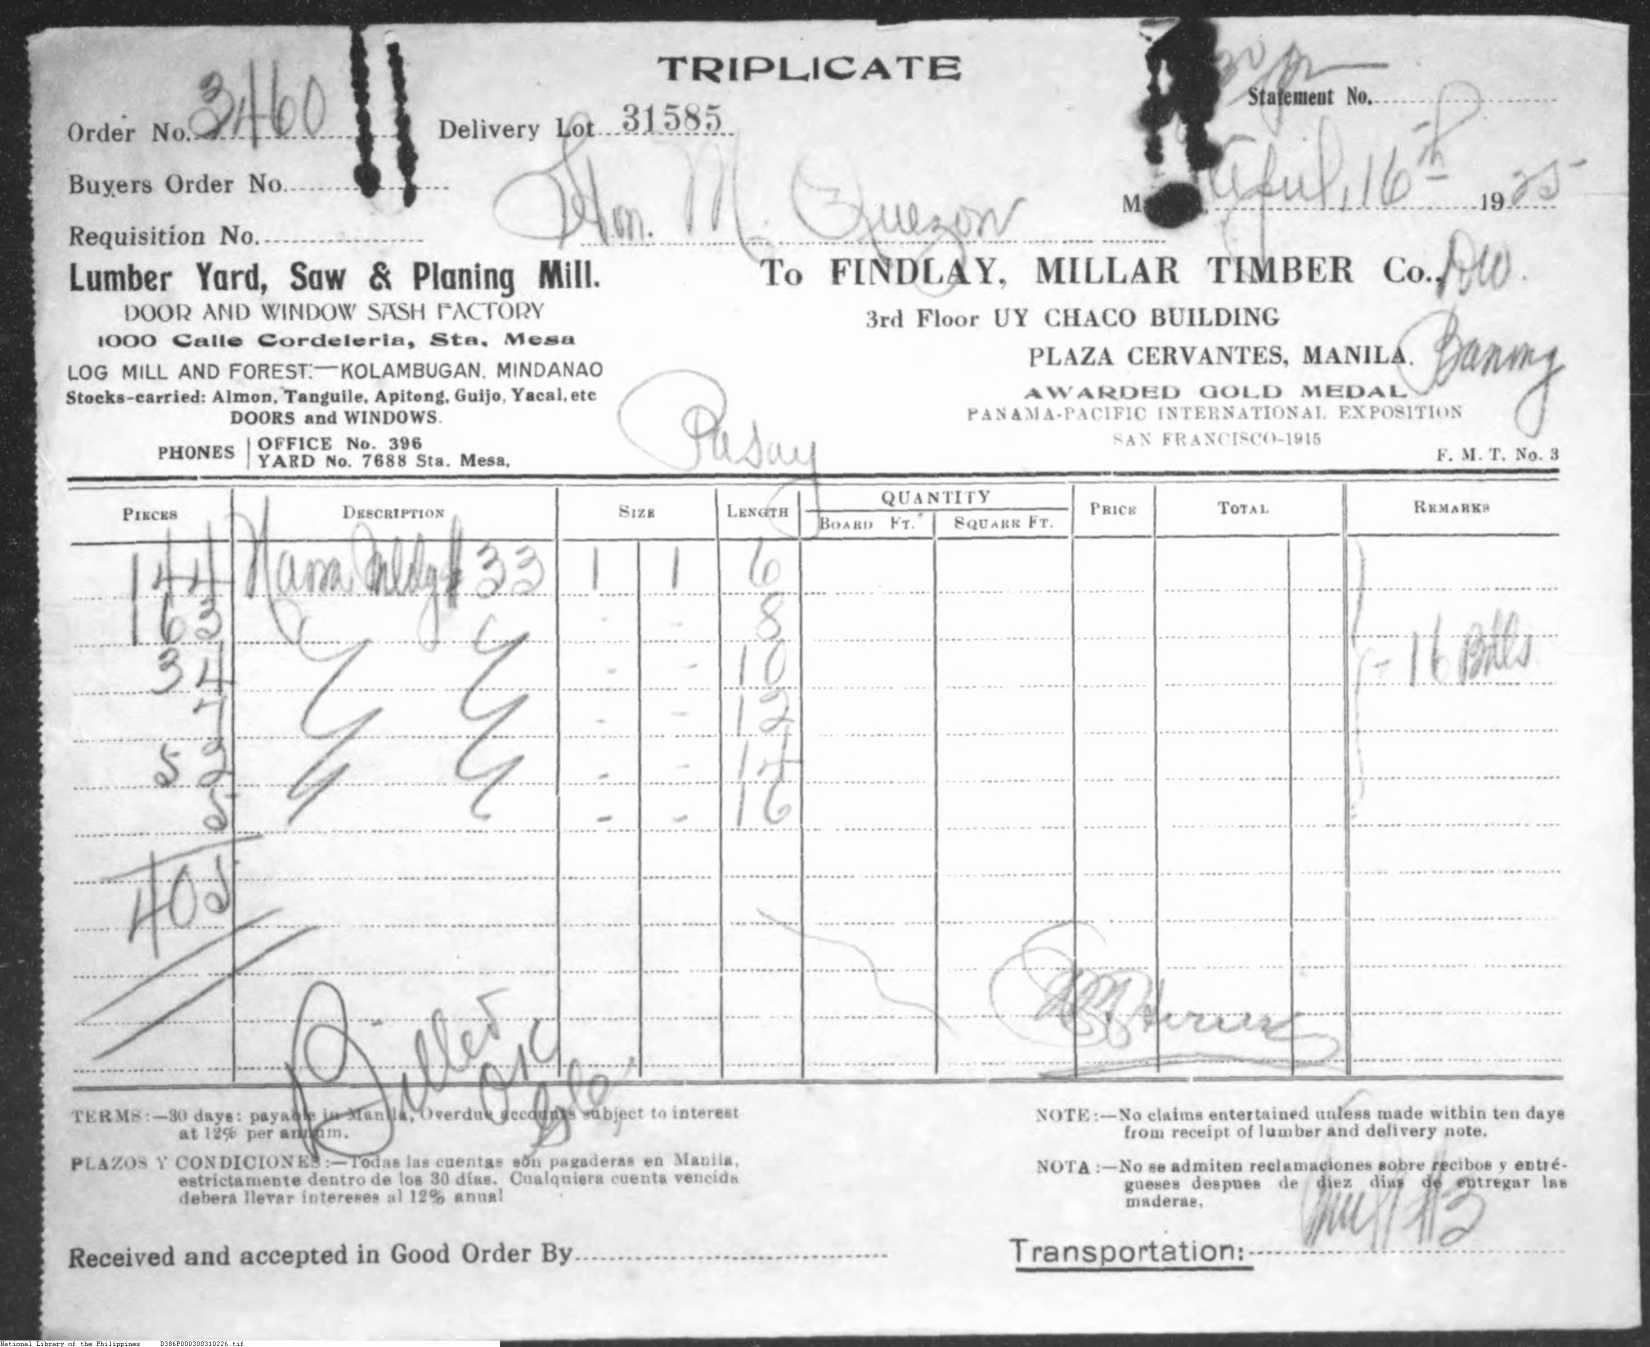 TRIPLICATE
Statement No.
Order No. 3460
Delivery Lot 31585
Buyers Order No.
Hon. M. Quezon
April, 16th 1925
Requisition No.
Lumber Yard, Saw & Planing Mill.
DOOR AND WINDOW SASH FACTORY
1000 Calle Cordeleria, Sta. Mesa
LOG MILL AND FOREST:—KOLAMBUGAN, MINDANAO
Stocks-carried: Almon, Tanguile, Apitong, Guijo, Yacal, etc
DOORS and WINDOWS.
PHONES OFFICE No. 396
YARD No. 7688 Sta. Mesa,
To FINDLAY, MILLAR TIMBER Co.,
3rd Floor UY CHACO BUILDING
PLAZA CERVANTES, MANILA.
AWARDED GOLD MEDAL
PANAMA-PACIFIC INTERNATIONAL EXPOSITION
SAN FRANCISCO-1915
F. M. T. No. 3
Pasay
PIECES DESCRIPTION SIZE LENGTH QUANTITY PRICE TOTAL REMARKS
BOARD FT. SQUARE FT.
144 Narra Mldg # 33 1 1 6
163 " " - - 8
34 " " - - 10 - 16 Bdls
7 " " - - 12
52 " " - - 14
5 " " - - 16
405
Billed
OK
TERMS:—30 days: payable in Manila, Overdue accounts subject to interest
at 12% per annum.
PLAZOS Y CONDICIONES:—Todas las cuentas son pagaderas en Manila,
estrictamente dentro de los 30 dias. Cualquiera cuenta vencida
debera llevar intereses al 12% annual
NOTE:—No claims entertained unless made within ten days
from receipt of lumber and delivery note.
NOTA:—No se admiten reclamaciones sobre recibos y entré-
gueses despues de diez dias de entregar las
maderas.
Received and accepted in Good Order By
Transportation:
National Library of the Philippines D386P000300310226.tif